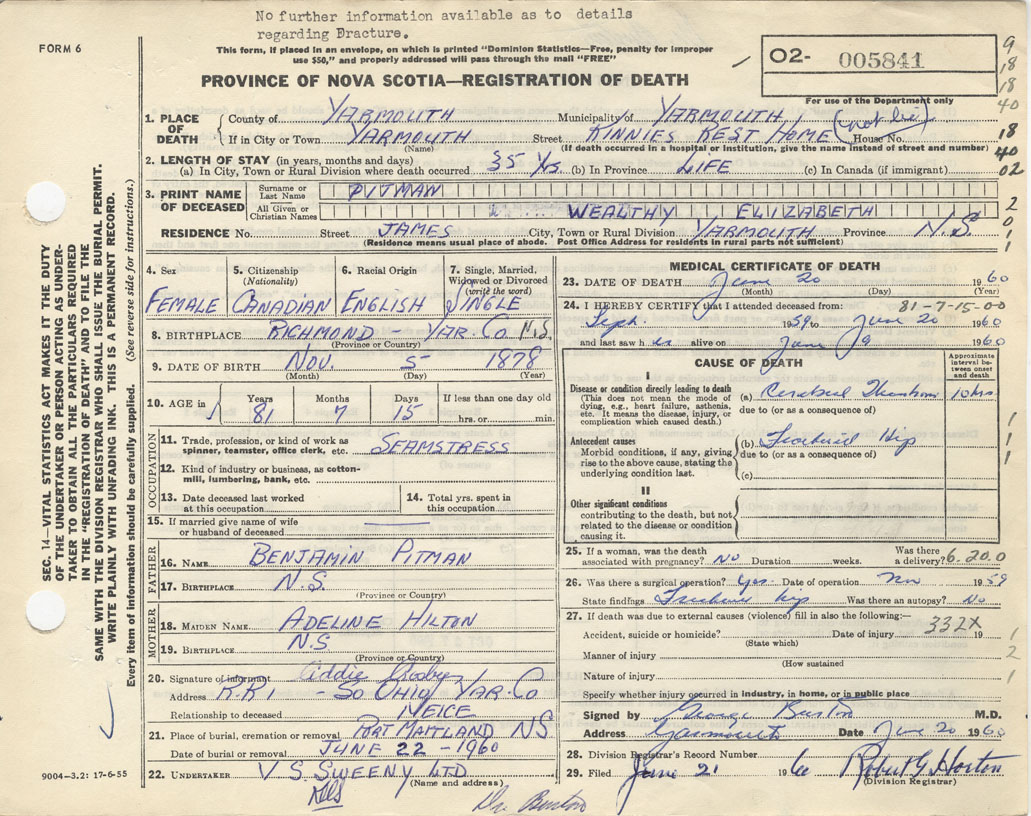 No further information available as to details
regarding Fracture.
FORM 6
This form, if placed in an envelope, on which is printed "Dominion Statistics—Free, penalty for improper
use $50," and properly addressed will pass through the mail "FREE"
PROVINCE OF NOVA SCOTIA—REGISTRATION OF DEATH
O2- 005841
For use of the Department only
9
18
18
40
18
40
02
2
0
1
1
1. PLACE OF DEATH
County of YARMOUTH Municipality of YARMOUTH
If in City or Town YARMOUTH Street KINNIES REST HOME (not lic) House No.
(Name) (If death occurred in a hospital or Institution, give the name instead of street and number)
2. LENGTH OF STAY (in years, months and days)
(a) In City, Town or Rural Division where death occurred 35 Yrs. (b) In Province LIFE (c) In Canada (if immigrant)
3. PRINT NAME OF DECEASED
Surname or Last Name PITMAN
All Given or Christian Names WEALTHY ELIZABETH
RESIDENCE No. Street JAMES City, Town or Rural Division YARMOUTH Province N.S.
(Residence means usual place of abode. Post Office Address for residents in rural parts not sufficient)
4. Sex FEMALE
5. Citizenship (Nationality) CANADIAN
6. Racial Origin ENGLISH
7. Single, Married, Widowed or Divorced (write the word) SINGLE
8. BIRTHPLACE RICHMOND - YAR. CO N.S.
(Province or Country)
9. DATE OF BIRTH NOV. 5 1878
(Month) (Day) (Year)
10. AGE in Years 81 Months 7 Days 15 If less than one day old hrs. or min.
OCCUPATION
11. Trade, profession, or kind of work as spinner, teamster, office clerk, etc. SEAMSTRESS
12. Kind of industry or business, as cotton-mill, lumbering, bank, etc.
13. Date deceased last worked at this occupation
14. Total yrs. spent in this occupation
15. If married give name of wife or husband of deceased
FATHER
16. NAME BENJAMIN PITMAN
17. BIRTHPLACE N.S.
(Province or Country)
MOTHER
18. MAIDEN NAME ADELINE HILTON
19. BIRTHPLACE N.S
(Province or Country)
20. Signature of informant Addie Crosby
Address R.R 1 - SO OHIO YAR. CO
Relationship to deceased NEICE
21. Place of burial, cremation or removal PORT MAITLAND NS
Date of burial or removal JUNE 22 - 1960
22. UNDERTAKER V S SWEENY LTD
(Name and address)
Dr Burton
9004-3.2: 17-6-55
SEC. 14—VITAL STATISTICS ACT MAKES IT THE DUTY
OF THE UNDERTAKER OR PERSON ACTING AS UNDER-
TAKER TO OBTAIN ALL THE PARTICULARS REQUIRED
IN THE "REGISTRATION OF DEATH" AND TO FILE THE
SAME WITH THE DIVISION REGISTRAR WHO SHALL ISSUE THE BURIAL PERMIT.
WRITE PLAINLY WITH UNFADING INK. THIS IS A PERMANENT RECORD.
Every item of information should be carefully supplied. (See reverse side for instructions.)
MEDICAL CERTIFICATE OF DEATH
23. DATE OF DEATH June 20 1960
(Month) (Day) (Year)
24. I HEREBY CERTIFY that I attended deceased from: 81-7-15-00
Sept. 1959 to June 20 1960
and last saw her alive on June 19 1960
CAUSE OF DEATH
Approximate interval between onset and death
I
Disease or condition directly leading to death
(This does not mean the mode of dying, e.g., heart failure, asthenia, etc. It means the disease, injury, or complication which caused death.)
(a) Cerebral Thrombosis 10 hrs
due to (or as a consequence of)
Antecedent causes
Morbid conditions, if any, giving rise to the above cause, stating the underlying condition last.
(b) Fractured Hip
due to (or as a consequence of)
(c)
1
1
1
II
Other significant conditions
contributing to the death, but not related to the disease or condition causing it.
25. If a woman, was the death associated with pregnancy? NO Duration weeks. Was there a delivery? 6.20.0
26. Was there a surgical operation? Yes- Date of operation Nov 1959
State findings Fractured hip Was there an autopsy? No
27. If death was due to external causes (violence) fill in also the following:—
332X
Accident, suicide or homicide? Date of injury 19
(State which)
Manner of injury
(How sustained)
Nature of injury
1
2
1
Specify whether injury occurred in industry, in home, or in public place
Signed by George Burton M.D.
Address Yarmouth Date June 20 1960
28. Division Registrar's Record Number
29. Filed June 21 1960 Robert G Horton
(Division Registrar)